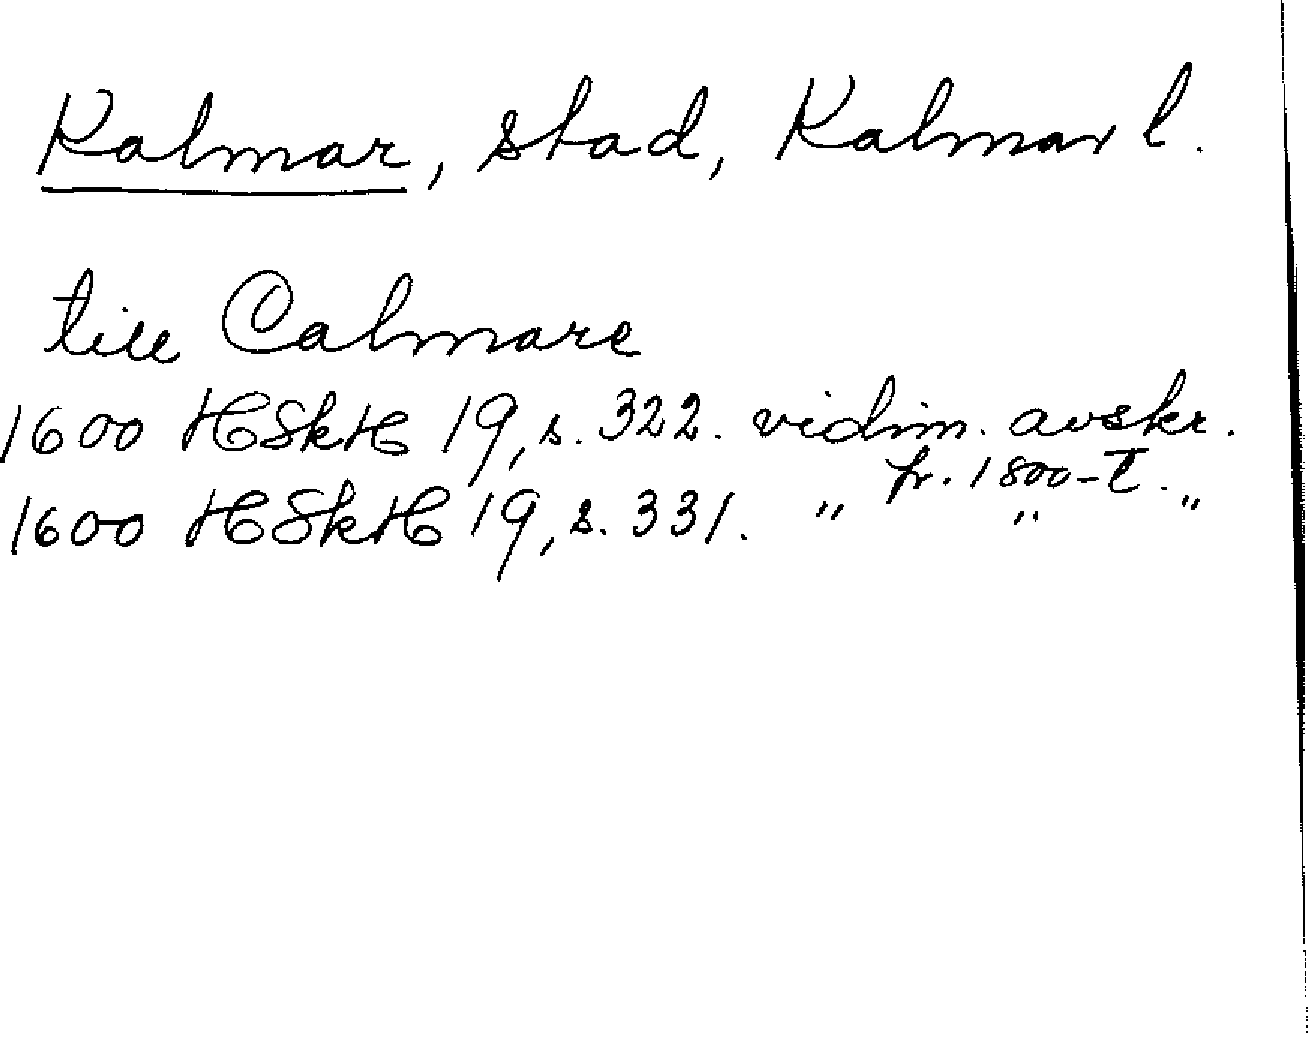 Kalmar, stad, Kalmar l.
till Calmare
1600 HSkH 19, s. 322. vidim. avskr.
fr. 1800-t.
1600 HSkH 19, s. 331. " " "